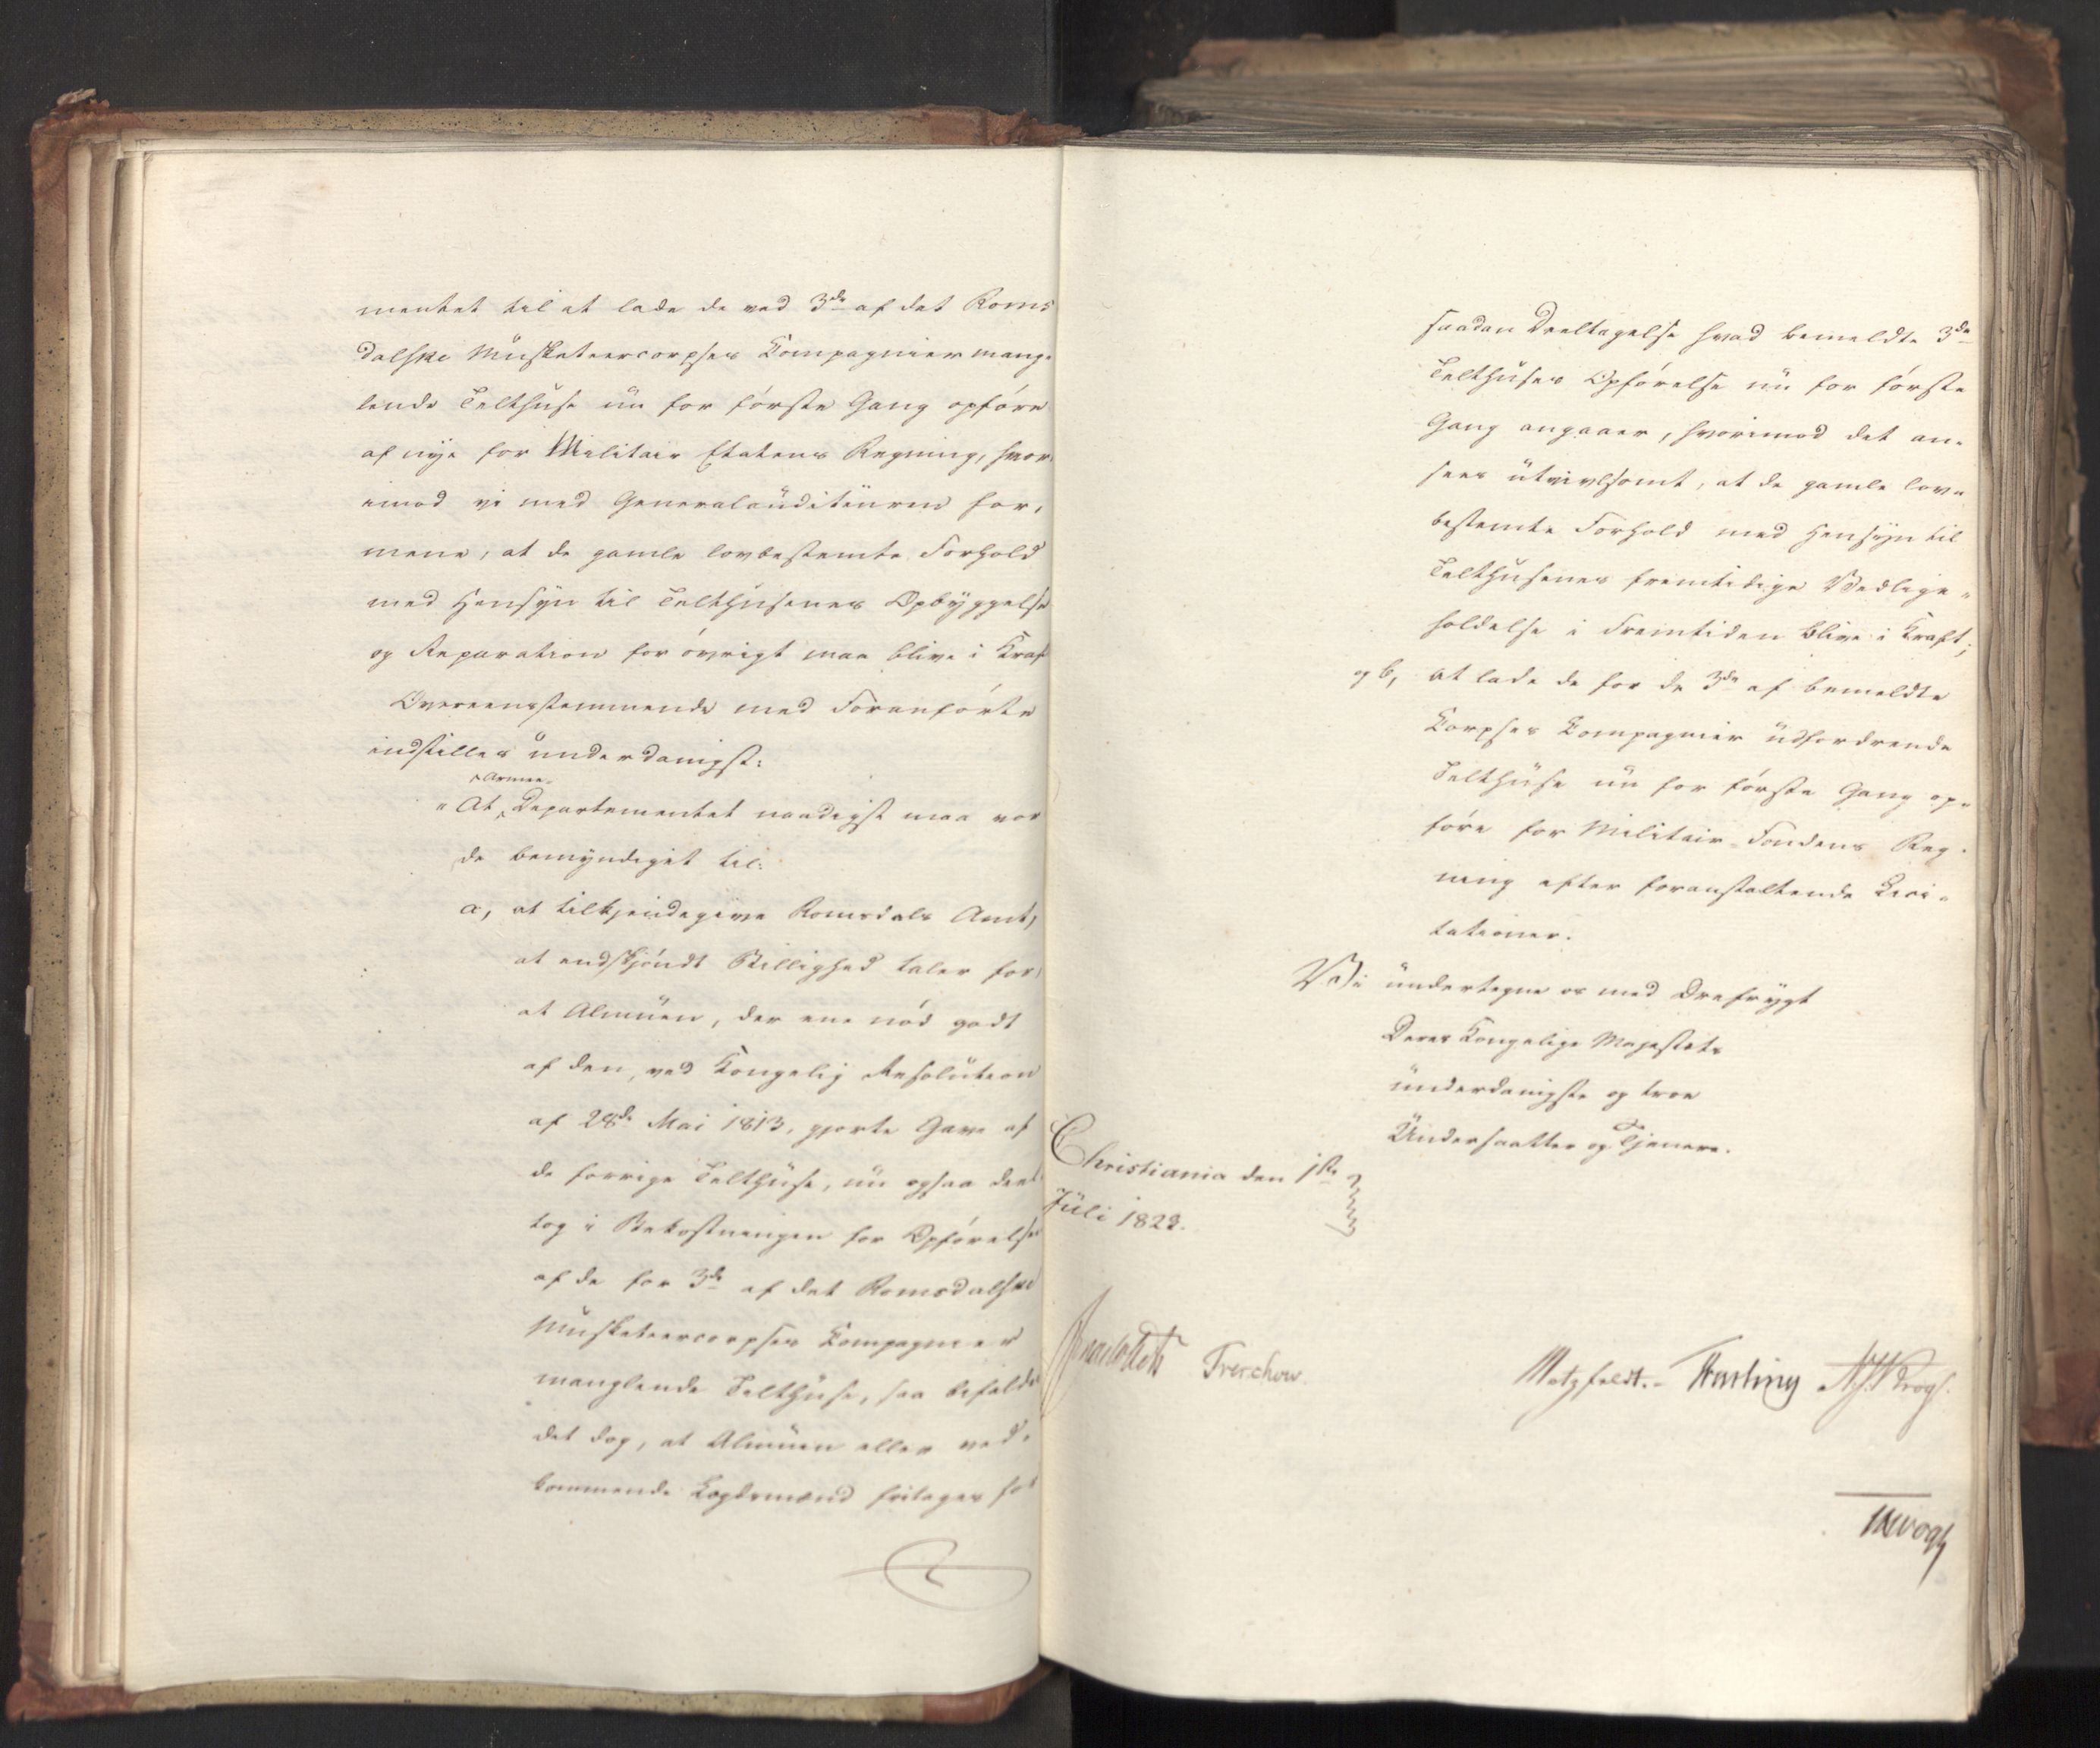 mentet til at lade de ved 3de af det Roms
dalske Musketeercorpses Compagnier mang-
lende Telthuse nu for første Gang opføre
af nye for Militair Etatens Regning, hvor-
imod vi med Generalauditeuren for-
mene, at de gamle lovbestemte Forhold
med Hensyn til Telthusenes Opbyggelse
og Reparation for øvrigt maa blive i Kraft
Overeensstemmende med Foranførte
indstilles underdanigst:
Armee-
"At Departementet naadigst maa vor
de bemyndiget til:
a, at tilkjendegive Romsdals Amt,
at endskjøndt Billighed taler for,
at Almuen, der ene nød godt
af den, ved Kongelig Resolution
af 28de Mai 1813, gjorte Gave af
de forrige Telthuse, nu ogsaa deel-
tog i Bekostningen for Opførelse
af de for 3de af det Romsdalske
Musketeercorpses Compagnier
manglende Telthuse, saa befaledes
det dog, at Almuen eller ved-
kommende Lægdsmænd fritages for
saadan Deeltagelse hvad bemeldte 3de
Telthuses Opførelse nu for første
Gang angaaer, hvorimod det an-
sees utvivlsomt, at de gamle lov-
bestemte Forhold med Hensyn til
Telthusenes fremtidige Vedlige-
holdelse i Fremtiden blive i Kraft;
og b, at lade de for de 3de af bemeldte
Corpses Compagnier udfordrende
Telthuse nu for første Gang op-
føre for Militair-Fondens Reg-
ning efter foranstaltende Lici-
tationer.
Vi undertegne os med Ærefrygt
Deres Kongelige Majestets
underdanigste og troe
Undersaatter og Tjenere.
Christiania den 1ste
Juli 1822.
Treschow.
Motzfeldt. Fasting